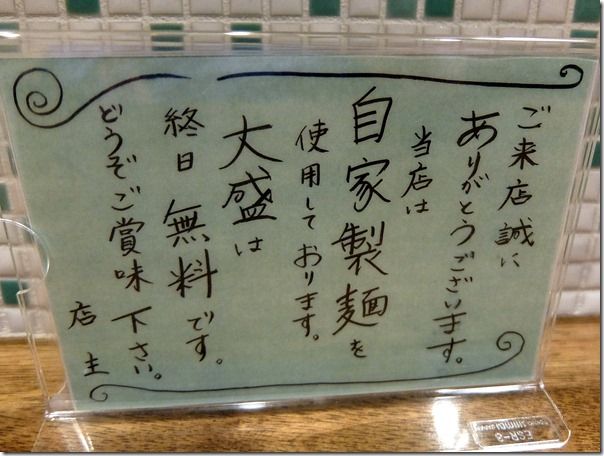 ご来店誠に
ありがとうございます。
当店は
自家製麺を
使用しております。
大盛は
終日無料です。
どうぞご賞味下さい。
店主
ESR-8